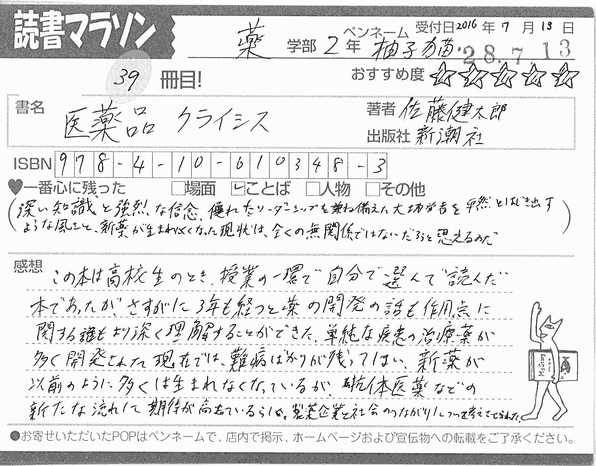 読書マラソン
薬 学部 2 年
ペンネーム 柚子
受付日 2016 年 7 月 13 日
28. 7. 13
39 冊目!
おすすめ度 ☆☆☆☆☆
書名 医薬品 クライシス
著者 佐藤健太郎
出版社 新潮社
ISBN 978-4-10-610348-3
♥一番心に残った □場面 ☑ことば □人物 □その他
(深い知識と強烈な信念、優れたリーダーシップを兼ね備えた大功労者を平然とはじき出す
ような風土と、新薬が生まれなくなった現状は、全くの無関係ではないだろうと思えるのだ)
感想
この本は高校生のとき、授業の一環で自分で選んで読んだ
本であったが、さすがに3年も経つと薬の開発の話も作用点に
関する話もより深く理解することができた。単純な疾患の治療薬が
多く開発された現在では、難病ばかりが残ってしまい、新薬が
以前のように多くは生まれなくなっているが、抗体医薬などの
新たな流れに期待が高まっているらしい。製薬企業と社会のつながりについて考えさせられた。
Mystery
●お寄せいただいたPOPはペンネームで、店内で掲示、ホームページおよび宣伝物への転載をご了承ください。